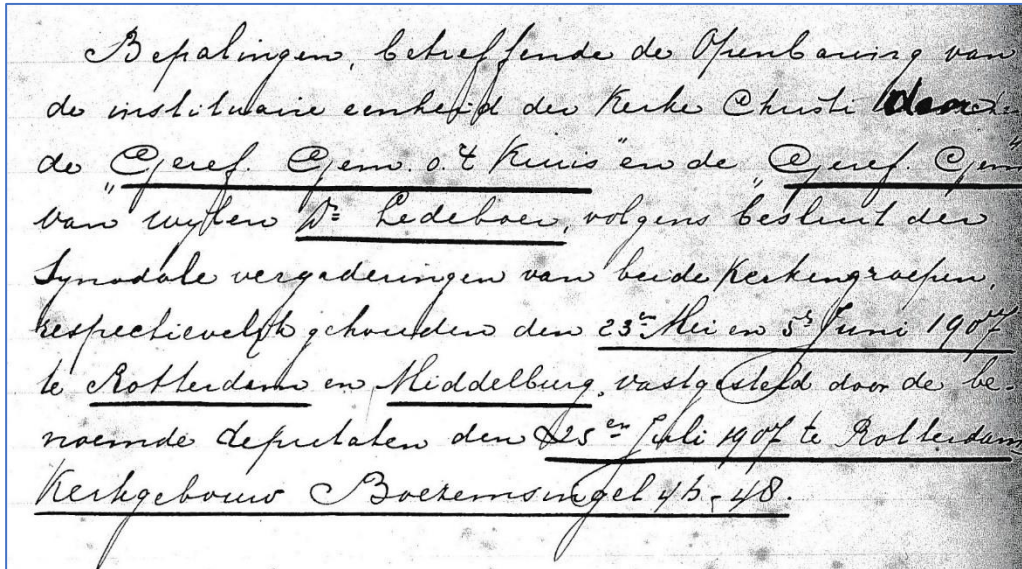 Bepalingen, betreffende de Openbaring van
de instituaire eenheid der Kerke Christi
de "Geref. Gem. o. 't Kruis" en de "Geref. Gem"
van wijlen Ds Ledeboer, volgens besluit der
Synodale vergaderingen van beide Kerkengroepen,
respectievelijk gehouden den 23en Mei en 5s Juni 1907
te Rotterdam en Middelburg, vastgesteld door de be-
noemde deputaten den 25en Juli 1907 te Rotterdam
Kerkgebouw Boezemsingel 46-48.